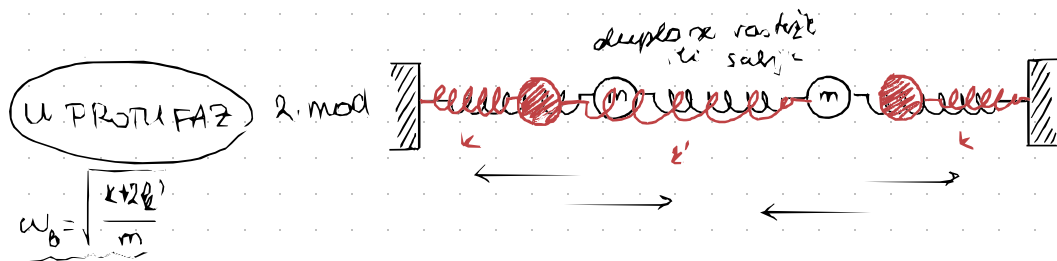 duplo se rasteže
ili sabija
U PROTUFAZ 2. mod
m m
k k' k
ω_B = √((k+2k')/m)